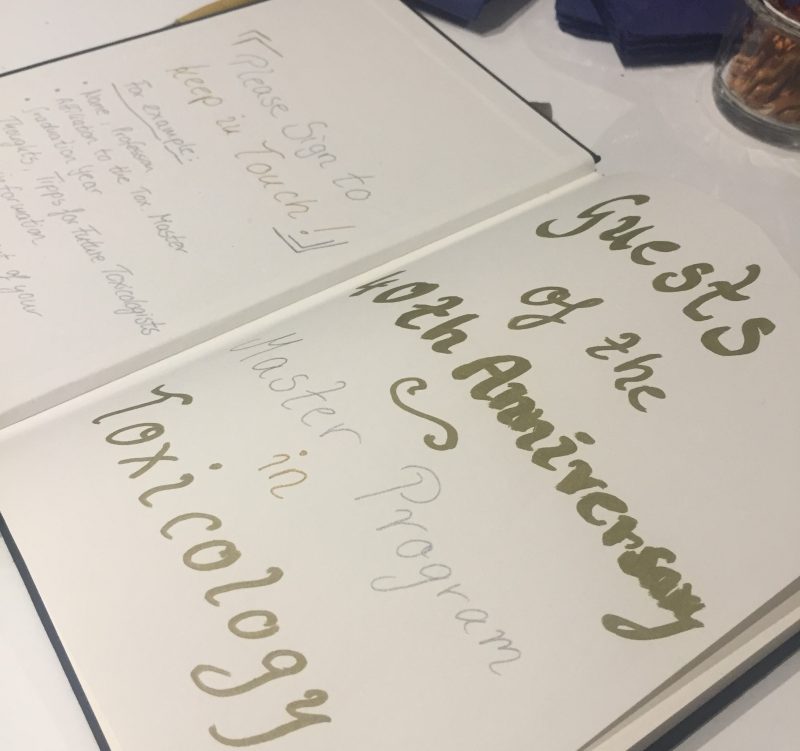 Please Sign to
Keep in Touch!
For example:
• Name, Profession
• Relation to the Tox Master
• Graduation Year
Thoughts, Tipps for Future Toxicologists
information
of your
Guests
of the
40th Anniversary
Master Program
in
Toxicology